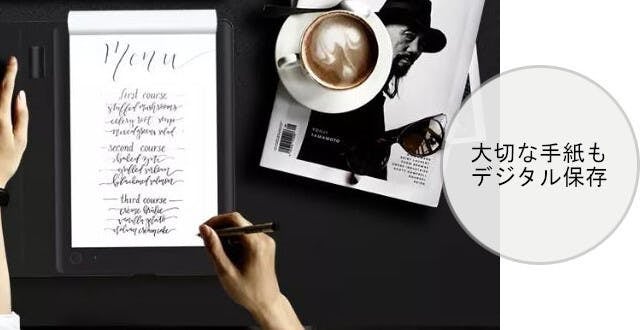 Menu
first course
stuffed mushrooms
celery root soup
mixed greens salad
second course
baked ziti
grilled salmon
blackened salmon
third course
crème brûlée
vanilla gelato
YOHJI
YAMAMOTO
大切な手紙も
デジタル保存